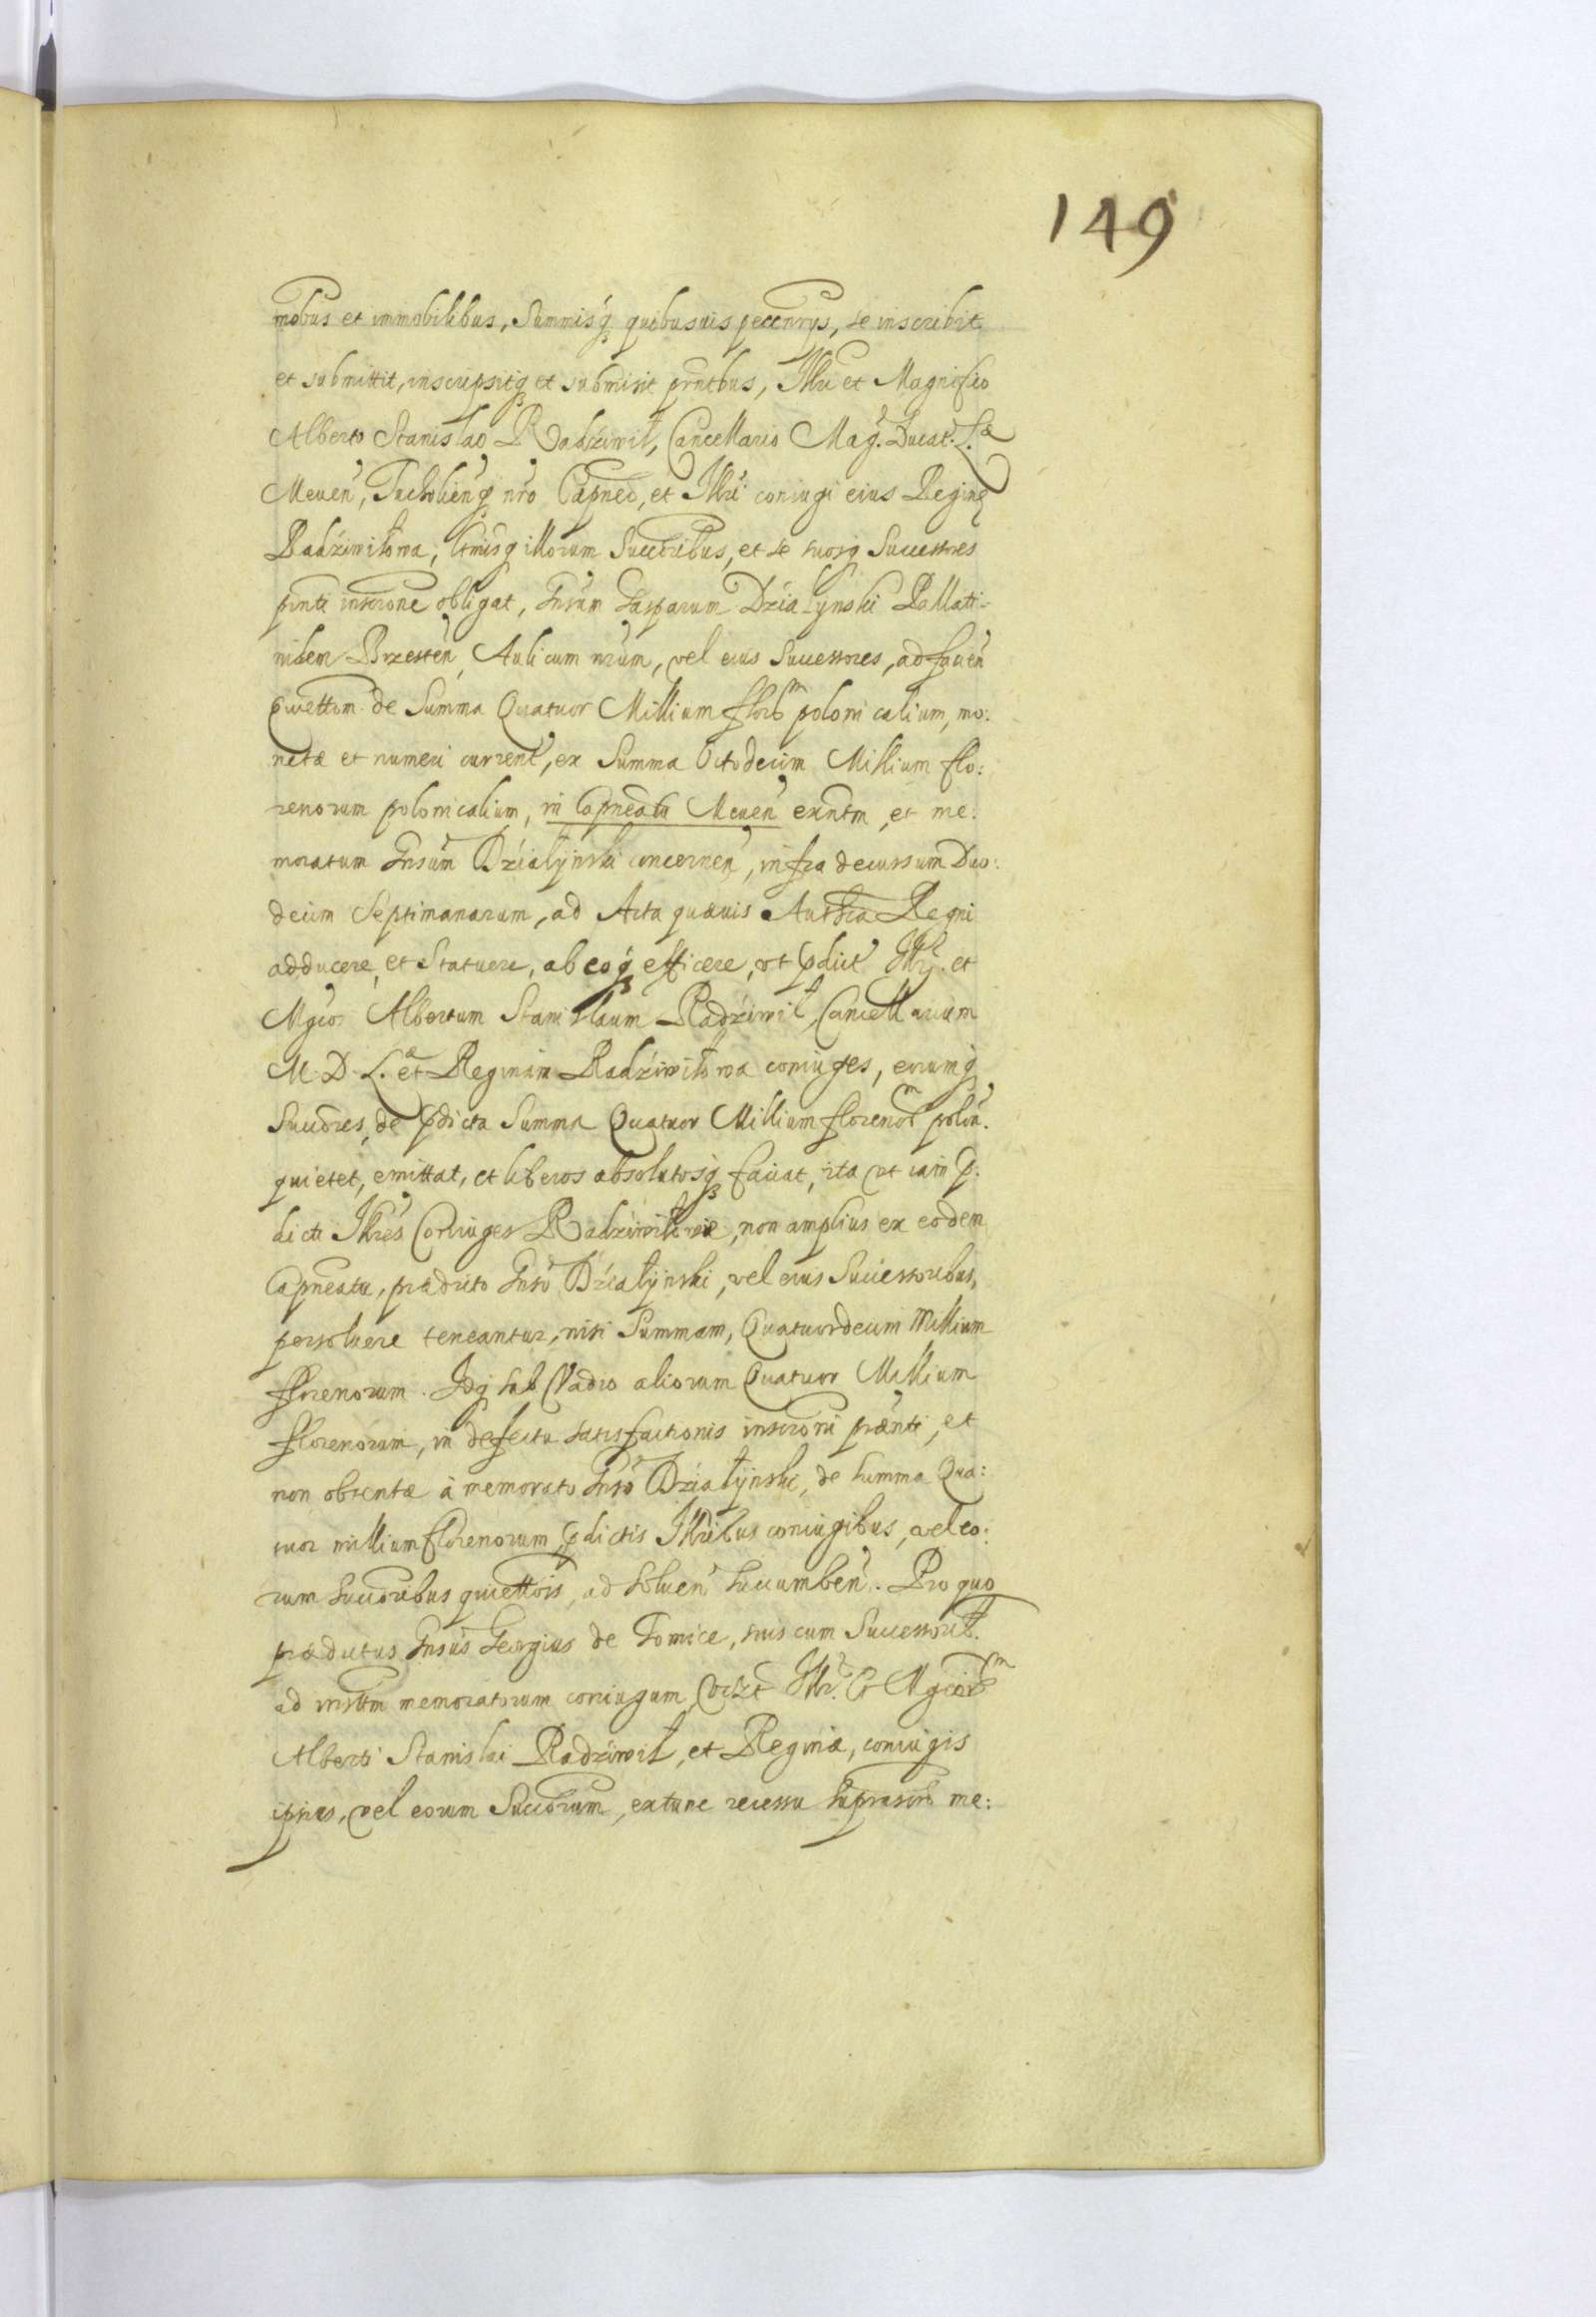 149
mobus et immobilibus, Summisq quibusuis pecenrys, se inscribit,
et submittit, inscripsitq et submisit prntbus, Illri et Magnifico
Alberto Stanislao Radziwił, Cancellario Mag. Ducat. L.æ
Meuen, Tucholienq nro Capneo, et Illri coniugi eius Reginę
Radziwiłowa, ltmisq illorum Succoribus, et se suosq Successores
pnti inscrone obligat, Gnsum Gasparum Działynski Pallati-
nidem Brzesten, Aulicum nrum, vel eius Successores, ad facien
Quiettom de Summa Quatuor Millium florm polonicalium, mo:
netæ et numeri current, ex Summa Octodecim Millium flo:
renorum polonicalium, in Capneatu Meuen exntm, et me:
moratum Gnsum Działynski concernen, infra decursum Duo:
decim Septimanarum, ad Acta quæuis Authca Regni
adducere, et Statuere, ab eoq efficere, vt pdict Illr. et
Mgcos Albertum Stanislaum Radziwił, Cancellarium
M. D. L.æ et Reginam Radziwiłowa coniuges, eorumq
Succores, de pdicta Summa Quatuor Millium florenorm polon.
quietet, emittat, et liberos absolutosq faciat, ita vt iam p:
dicti Illres Coniuges Radziwiłowie, non amplius ex eodem
Capneatu, prædicto Gnso Działynski, vel eius Successoribus,
persoluere teneantur, nisi Summam, Quatuordecim Millium
florenorum. Idq sub Vadio aliorum Quatuor Millium
florenorum, in defectu satisfactionis inscroni prænti, et
non obtentæ à memorato Gnso Działynski, de summa Qua:
tuor millium florenorum, pdictis Illribus coniugibus, vel eo:
rum succoribus quiettois, ad soluen succumben. Pro quo
prædictus Gnsus Georgius de Tomice, suis cum Successorib.
ad insttm memoratorum coniugum, vidzt Illr. et Mgcorm
Alberti Stanislai Radziwił, et Reginæ, coniugis
ipsius, vel eorum Succorum, extunc recessu suprascri me: